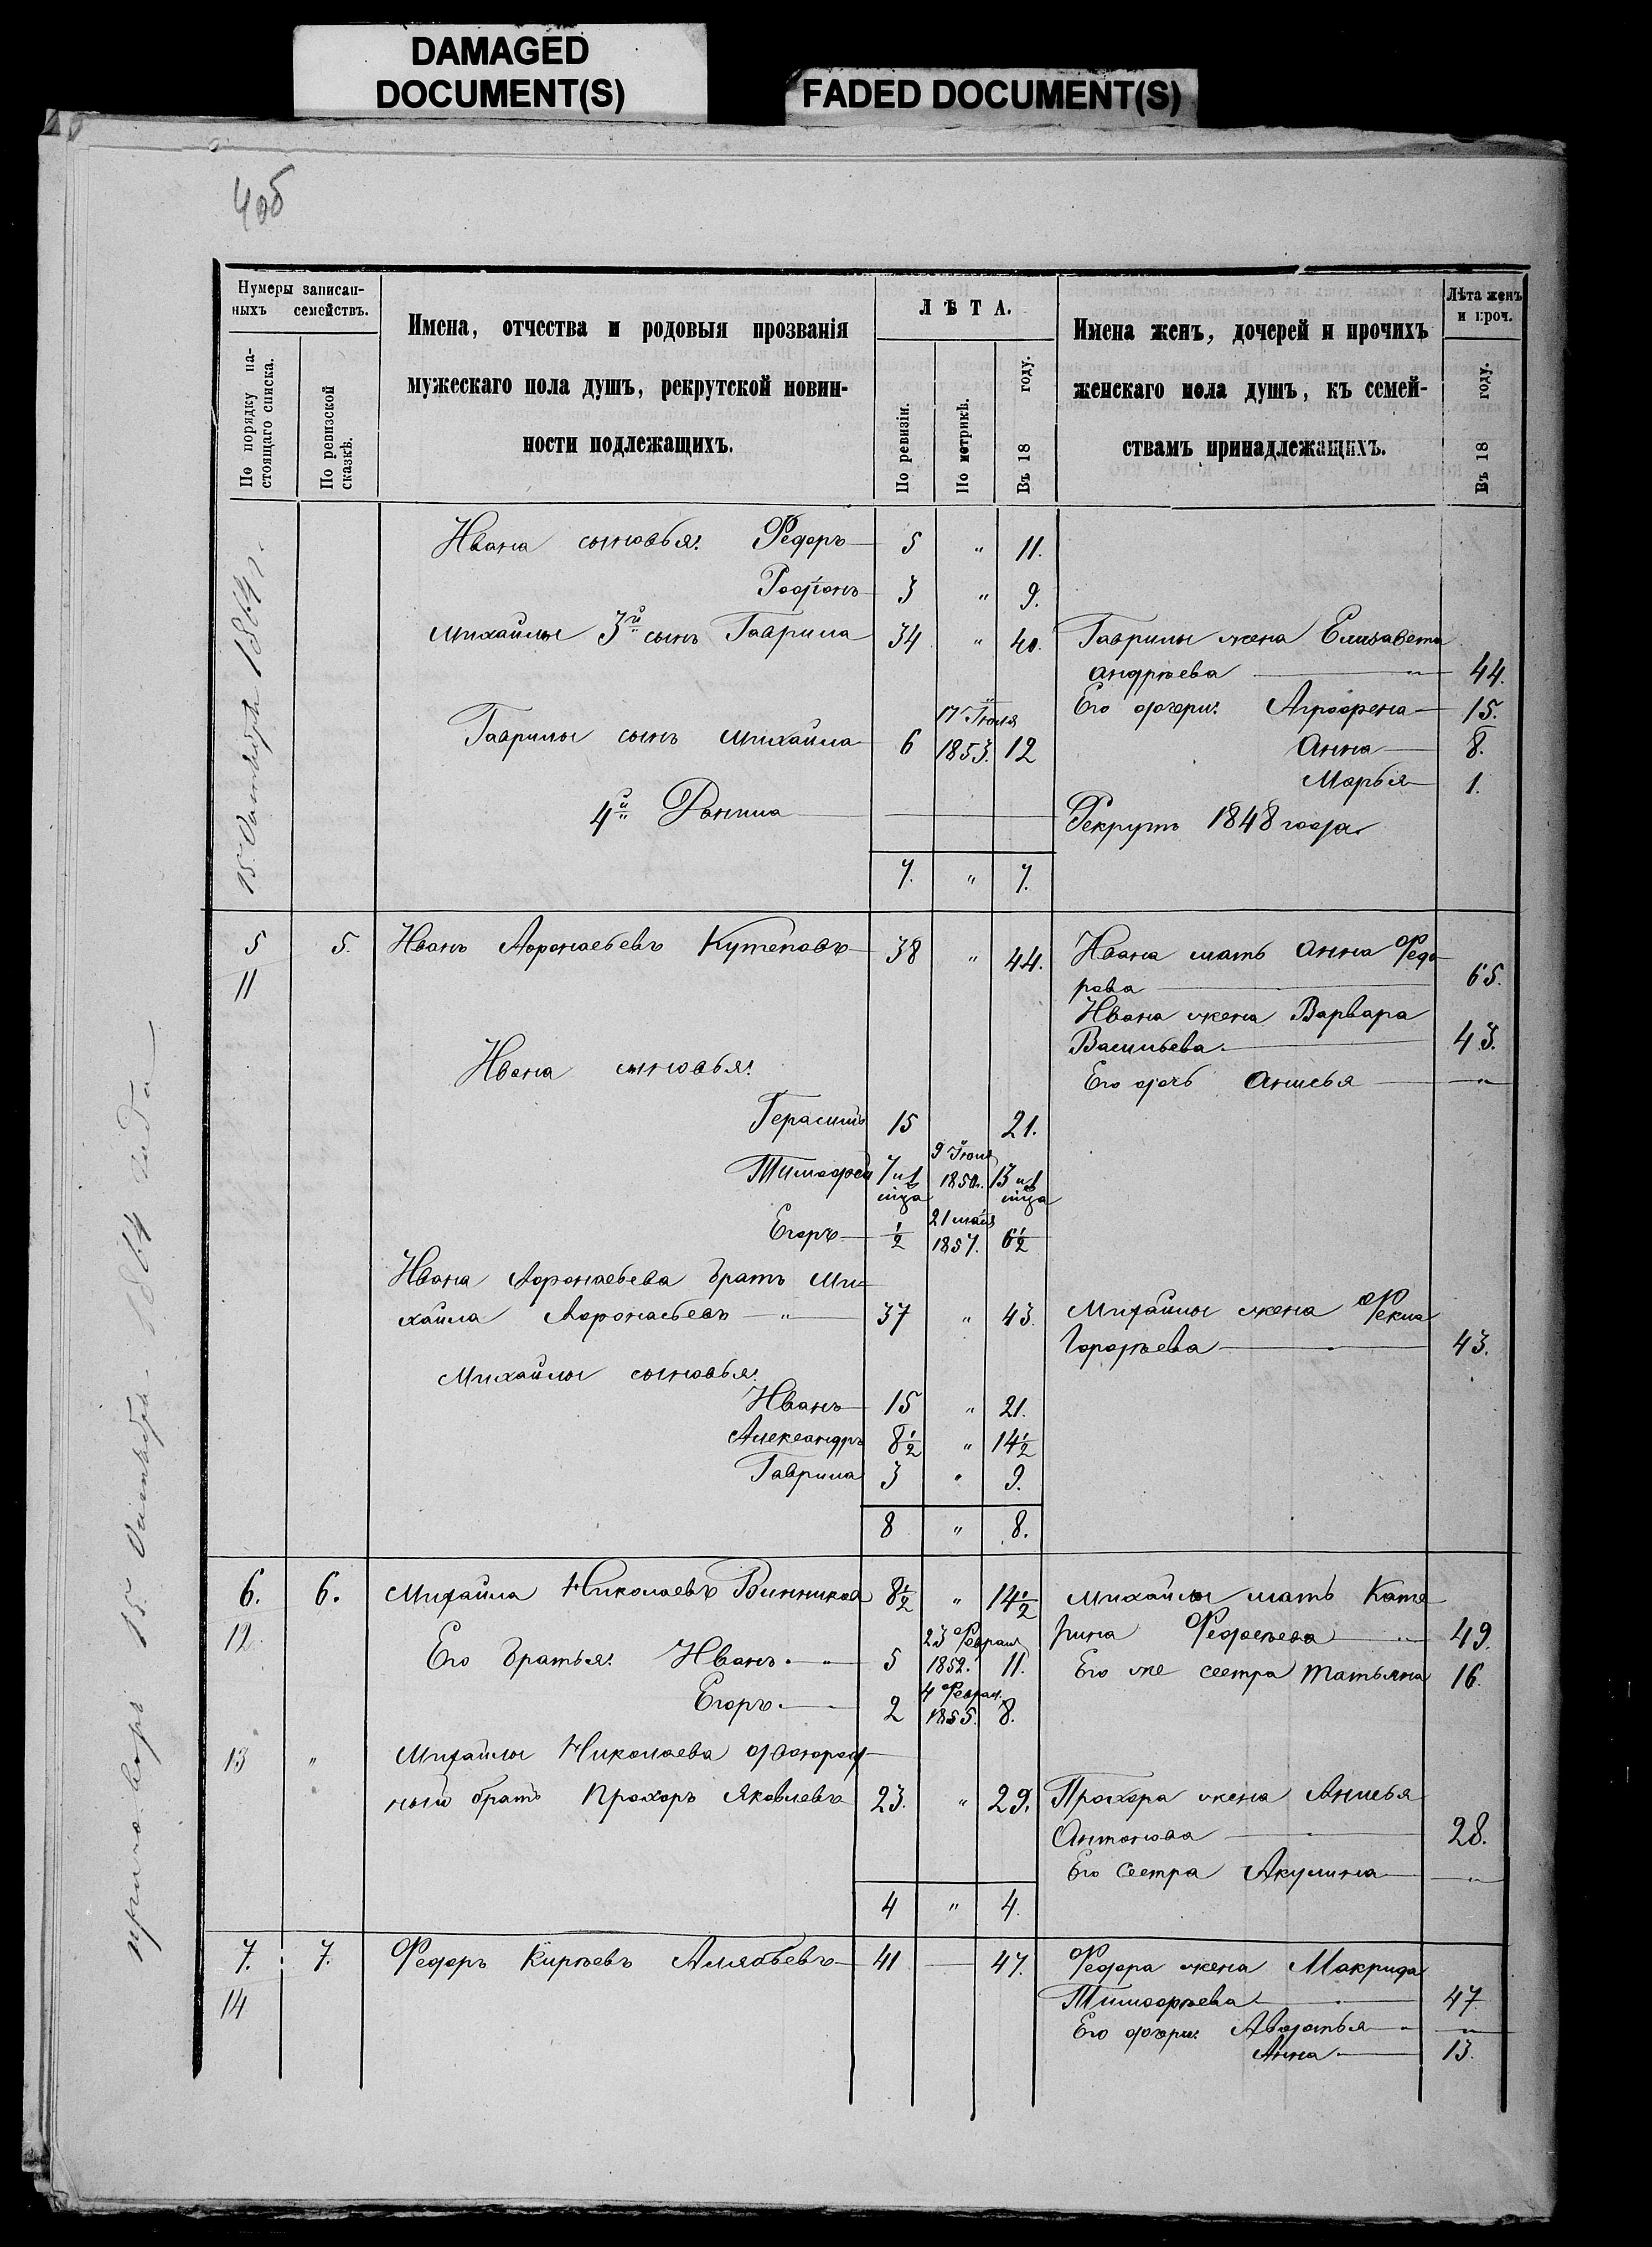 DAMAGED
DOCUMENT(S)
FADED DOCUMENT(S)
4об
Нумеры записан-
ныхъ семействъ.
По порядку на-
стоящаго списка.
По ревизской
сказкѣ.
Имена, отчества и родовыя прозванія
мужескаго пола душъ, рекрутской повин-
ности подлежащихъ.
ЛѢТА.
По ревизіи.
По метрикѣ.
Въ 18 году.
Имена женъ, дочерей и прочихъ
женскаго пола душъ, къ семей-
ствамъ принадлежащихъ.
Лѣта женъ
и проч.
Въ 18 году.
15 Октября 1864 г.
Ивана сыновья: Федоръ 5 " 11.
Родіонъ 3 " 9.
Михайлы 3й сынъ Гаврила 34 " 40. Гаврилы жена Елизавета
Андрѣева " 44.
Его дочери: Аграфена 15.
Гаврилы сынъ Михайла 6 17 Іюля 1853. 12 Анна 8.
Марья 1.
4й Данила Рекрутъ 1848 года
7. " 7.
5 5. Иванъ Афонасьевъ Кутеповъ 38 " 44. Ивана мать Анна Федо-
11 рова 65.
Ивана жена Варвара
Васильева 43.
Ивана сыновья:
Его дочь Анисья "
Герасимъ 15 21.
Тимофей 7 и 1 мца 9 Іюня 1850. 13 и 1 мца
Егоръ 1/2 21 мая 1857. 6 1/2
Ивана Афонасьева братъ Ми-
хайла Афонасьевъ " 37 " 43. Михайлы жена Фекла
Гордѣева 43.
Михайлы сыновья:
Иванъ 15 " 21.
Александръ 8 1/2 " 14 1/2
Гаврила 3 " 9.
8 " 8.
6. 6. Михайла Николаевъ Винников 8 1/2 " 14 1/2 Михайлы мать Кате-
12. рина 49.
Его братья: Иванъ. " 5 23 Феврал 1852. 11. Его же сестра Татьяна 16.
Егоръ. 2 4 Феврал. 1855. 8.
13 " Михайлы Николаева двоюрод-
ный братъ Прохоръ Яковлевъ 23. " 29. Прохора жена Анисья
Антонова 28.
Его сестра Акулина "
4 " 4.
7. 7. Федоръ Кирѣевъ Алябьевъ 41 47. Федора жена Макрида
14 Тимофѣева 47
Его дочери: Авдотья "
Анна 13.
приговоръ 15 Октября 1864 года